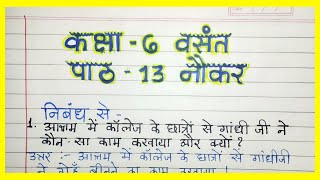 कक्षा - 6 वसंत
पाठ - 13 नौकर
निबंध से -
1. आश्रम में कॉलेज के छात्रों से गांधी जी ने
कौन-सा काम करवाया और क्यों ?
उत्तर :- आश्रम में कॉलेज के छात्रों से गांधीजी
ने गेहूँ बीनने का काम करवाया ।